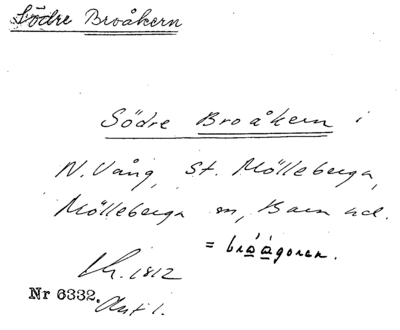 Södre Broåkern
Södre Broåkern i
N. Vång, St. Mölleberga,
Mölleberga sn, Bara hd.
= bråågoren.
1812
Nr 6332.
Akt 1.